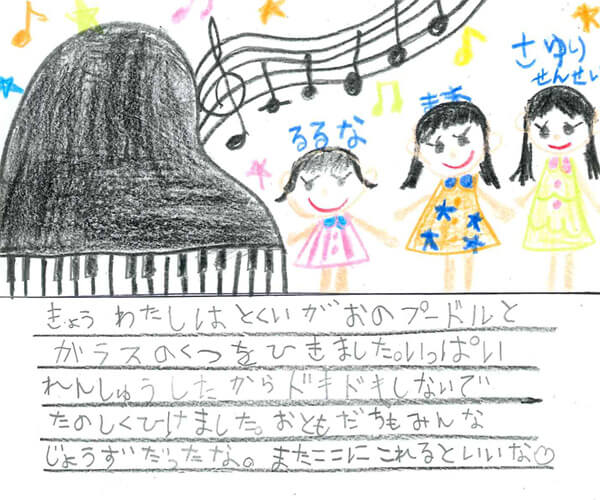 さゆり
せんせい
るるな
まあ
きょう わたしは とくいがおのプードルと
ガラスのくつを ひきました。いっぱい
れんしゅうしたから ドキドキしないで
たのしくひけました。おともだちもみんな
じょうずだったな。またここにこれるといいな♡